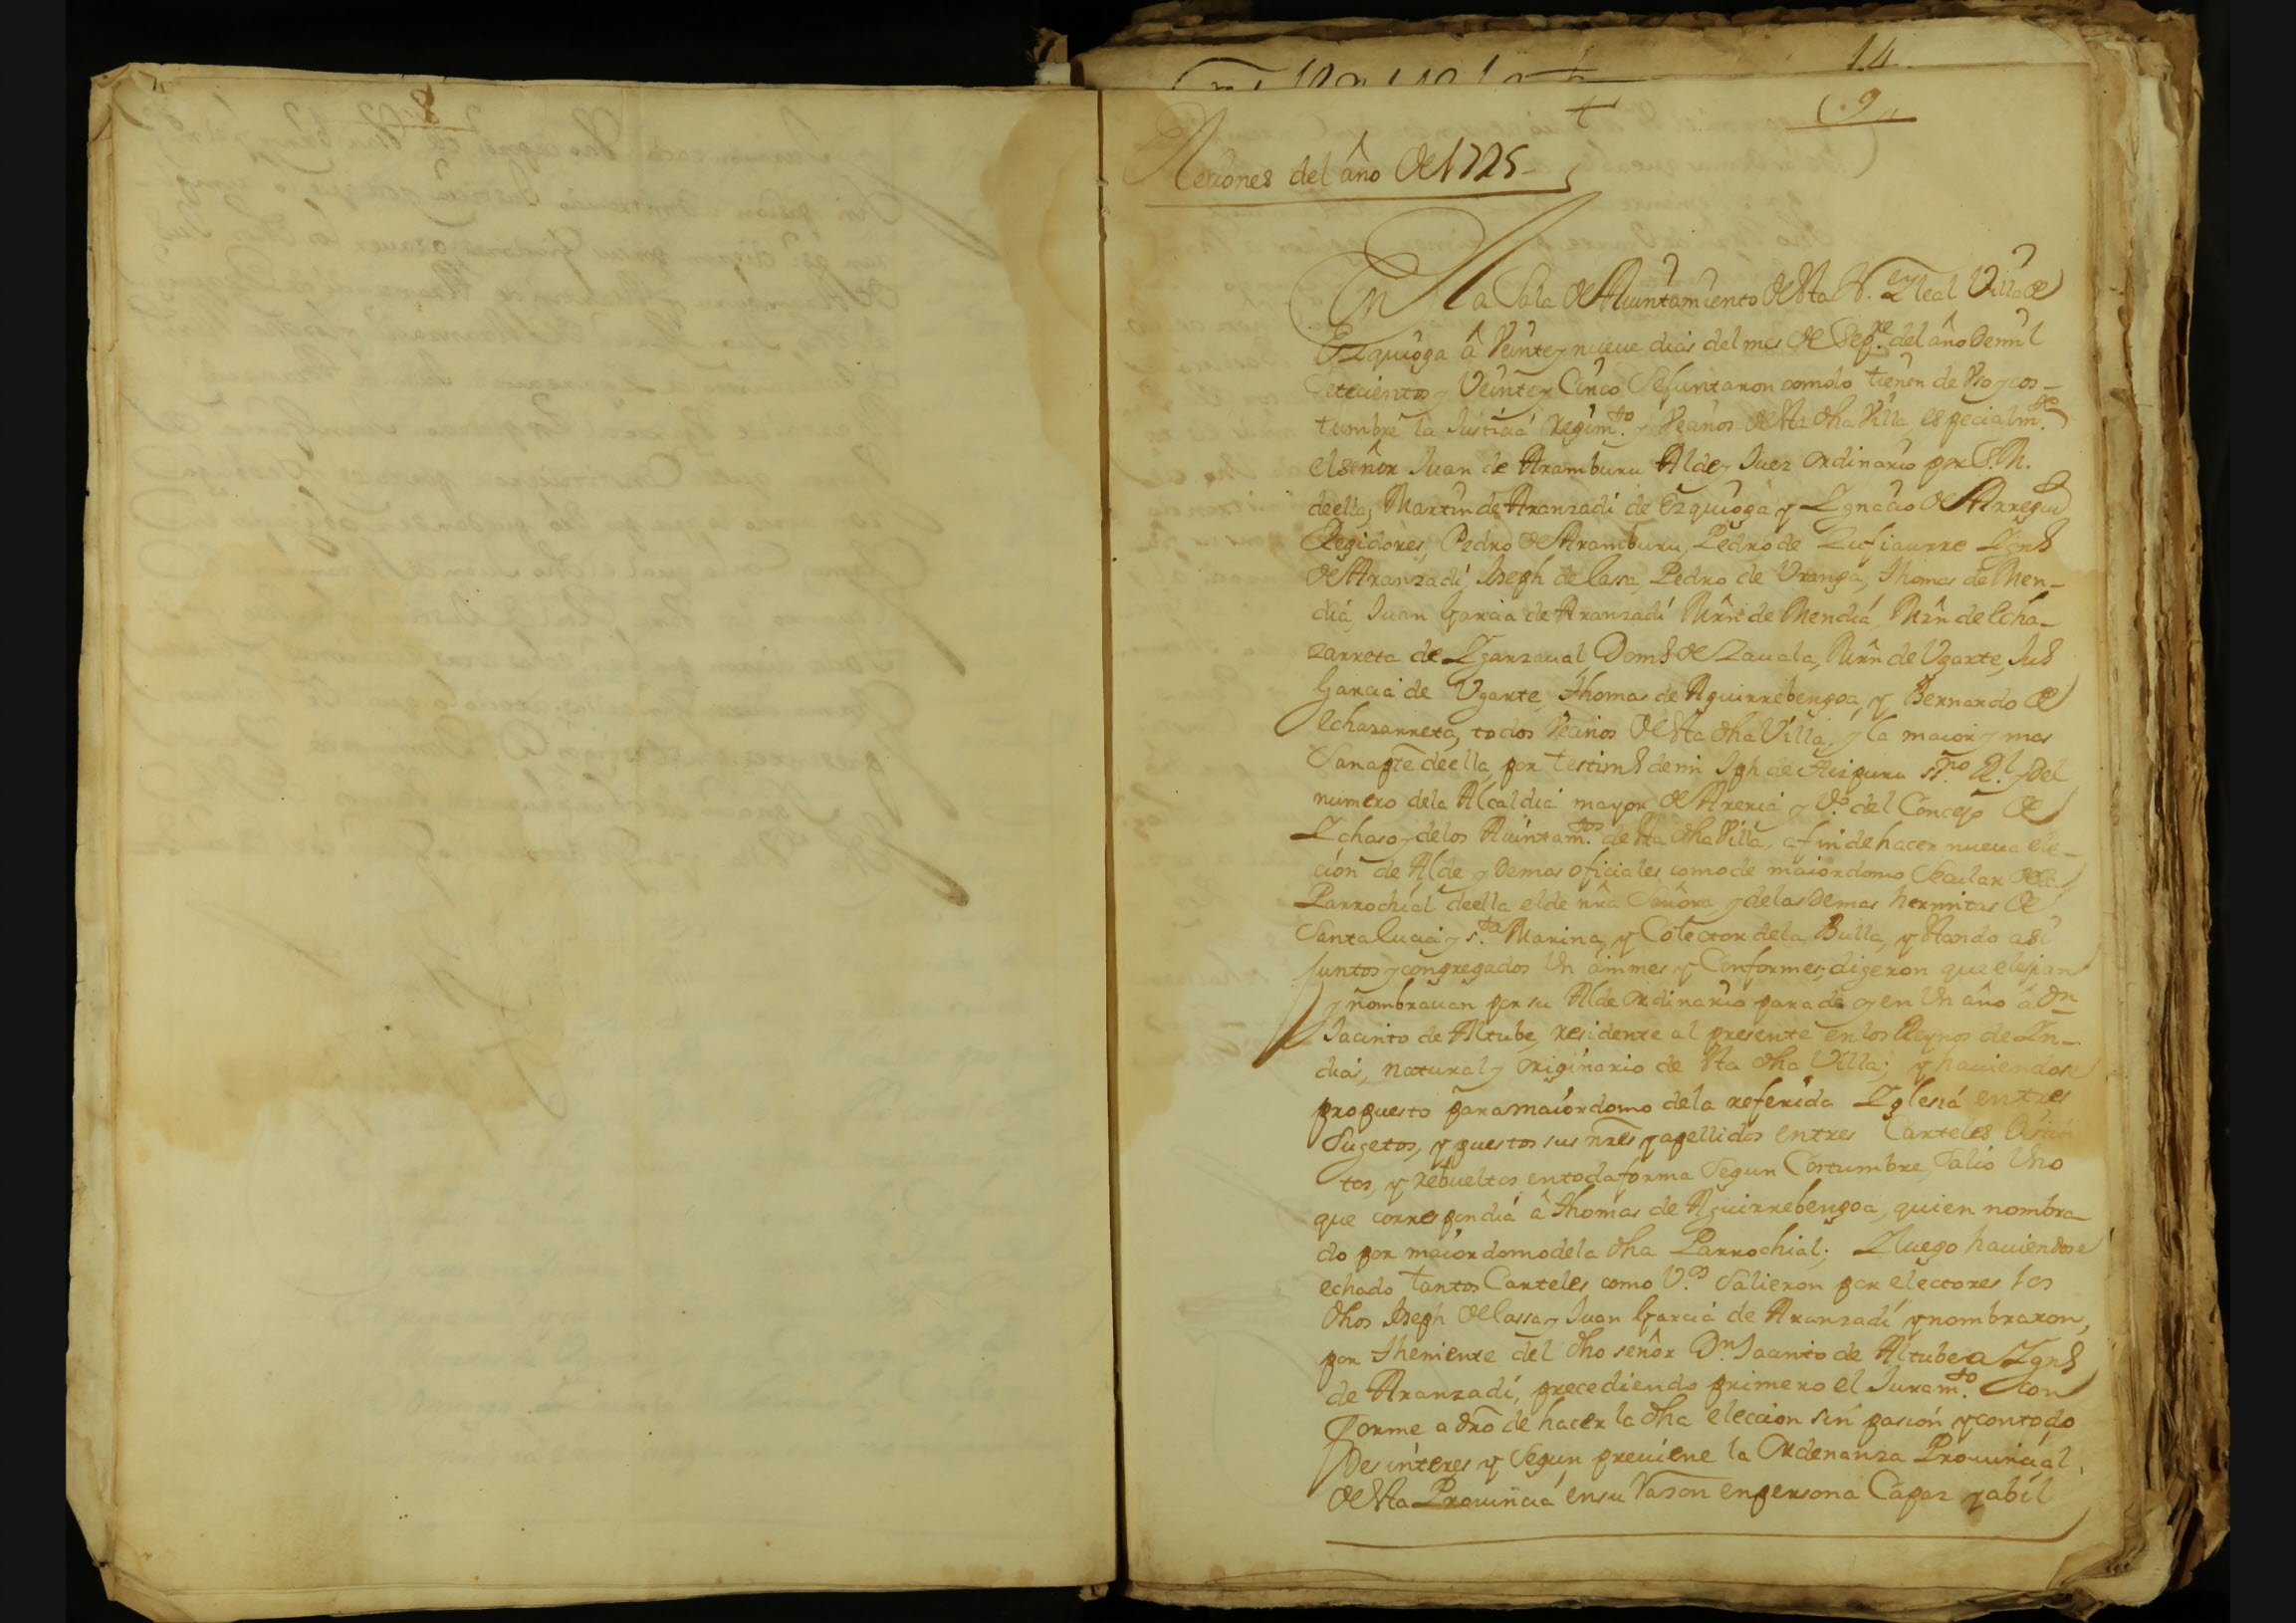 8
14
+
9
Elecciones del año de 1725
En la Sala de Aiuntamiento desta N. y leal Villa de
Ezquioga â Veinte y nueue dias del mes de Sepre. del año de mil
Setecientos y Veinte y Cinco Se juntaron como lo tienen de Vso y cos-
tumbre la Justicia Regimto. y Vezinos desta dha Villa, especialmte.
el señor Juan de Aramburu Alde y Juez ordinario por S.M.
de ella, Martin de Aranzadi de Ezquioga y Ygnacio de Arregui
Regidores, Pedro de Aramburu, Pedro de Lufiaurre Ygno
de Aranzadi, Joseph de lassa, Pedro de Vranga, Thomas de Men-
dia, Juan Garcia de Aranzadi Mrn de Mendia, Mrn de Echa-
zarreta de Ygarzaual Domo de Zauala, Mrn de Vgarte, Juo
Garcia de Vgarte, Thomas de Aguirrebengoa, y Bernardo de
Echazarreta, todos Vecinos desta dha Villa, y la maior y mas
Sana pte de ella, por testimo de mi Jph de Aizpuru ssno Rl. y del
numero de la Alcaldia mayor de Areria y Vo. del Concejo de
Ychaso y de los Aiuntamtos. de sta dha Villa, a fin de hacer nueua ele-
cion de Alde y demas oficiales como de maiordomo Secular de la
Parrochial de ella el de nra Señora y de las demas hermitas de
Santa lucia y Sta Marina, y Colector de la Bulla, y stando asi
Juntos y congregados Vnanimes y Conformes, digeron que elejian
y nombrauan por su Alde ordinario para de oy en Vn año â Dn
Jacinto de Altube, residente al presente en los Reynos de Yn-
dias, natural y originario de sta dha Villa; y hauiendose
propuesto para maiordomo de la referida Yglesia en tres
Sugetos, y puestos sus nres y apellidos en tres Carteles
tos, y rebueltos en toda forma Segun Costumbre, Salio Vno
que correspondia â Thomas de Aguirrebengoa, quien nombra-
do por maiordomo de la dha Parrochial; Y luego hauiendose
echado tantos Carteles como Vos. Salieron por electores los
dhos Joseph de lassa y Juan Garcia de Aranzadi y nombraron,
por Theniente del dho señor Dn. Jacinto de Altube a Ygno
de Aranzadi, precediendo primero el Juramto. con
forme a dro de hacer la dha eleccion sin pasion y con todo
Desinteres y Segun preuiene la Ordenanza Prouincial
de sta Prouincia en su razon en persona Capaz y abil